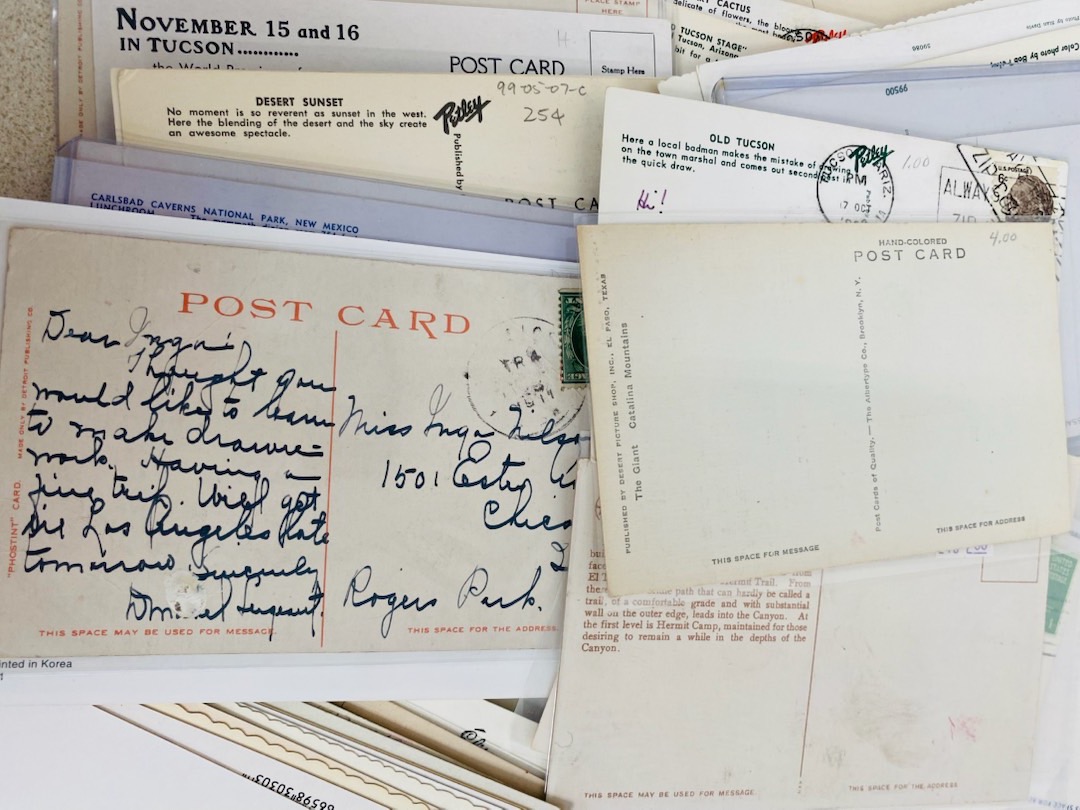 PLACE STAMP
HERE
NOVEMBER 15 and 16
IN TUCSON............
POST CARD
Stamp Here
MADE ONLY BY DETROIT PUBLISHING CO.
CACTUS
delicate of flowers, the
TUCSON STAGE"
Tucson, Arizona
bit for a
59086
Color photo by Bob Petley
99500
DESERT SUNSET
No moment is so reverent as sunset in the west.
Here the blending of the desert and the sky create
an awesome spectacle.
Petley
Published by
99-05-07-C
25¢
POST CA
OLD TUCSON
Here a local badman makes the mistake of drawing
on the town marshal and comes out second best in
the quick draw.
Petley
1.00
Hi!
ARIZ.
PM
17 OCT
ALWAYS
ZIP
U.S. POSTAGE
CARLSBAD CAVERNS NATIONAL PARK, NEW MEXICO
LUNCHROOM
POST CARD
MADE ONLY BY DETROIT PUBLISHING CO.
"PHOSTINT" CARD.
Dear Inga:
Thought you
would like to learn
to make drawn-
work. Having a
fine trip. Will get
Los Angeles late
tomorrow. Sincerely
THIS SPACE MAY BE USED FOR MESSAGE.
Miss Inga
1501 Estes
Chica
Rogers Park.
THIS SPACE FOR THE ADDRESS.
HAND-COLORED
POST CARD
4.00
PUBLISHED BY DESERT PICTURE SHOP, INC., EL PASO, TEXAS
The Giant Catalina Mountains
Post Cards of Quality.—The Albertype Co., Brooklyn, N. Y.
THIS SPACE FOR MESSAGE
THIS SPACE FOR ADDRESS
El T
path that can hardly be called a
trail, of a comfortable grade and with substantial
wall on the outer edge, leads into the Canyon. At
the first level is Hermit Camp, maintained for those
desiring to remain a while in the depths of the
Canyon.
THIS SPACE MAY BE USED FOR MESSAGE
THIS SPACE FOR THE ADDRESS
nted in Korea